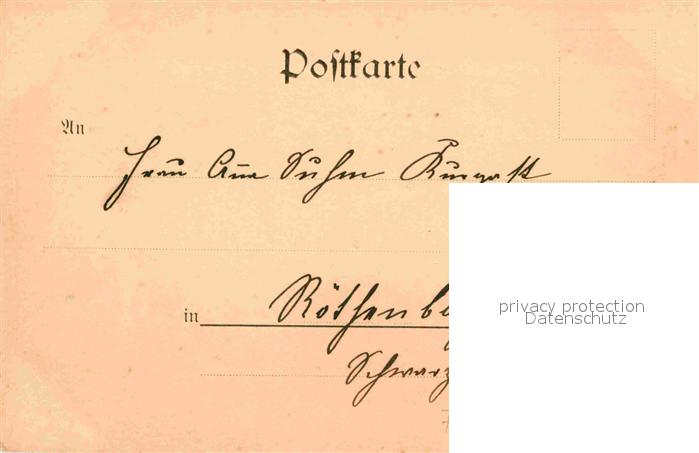 Postkarte
An
Frau Ana Suhm Kurgast
in Röthenb
Schwarz
privacy protection
Datenschutz